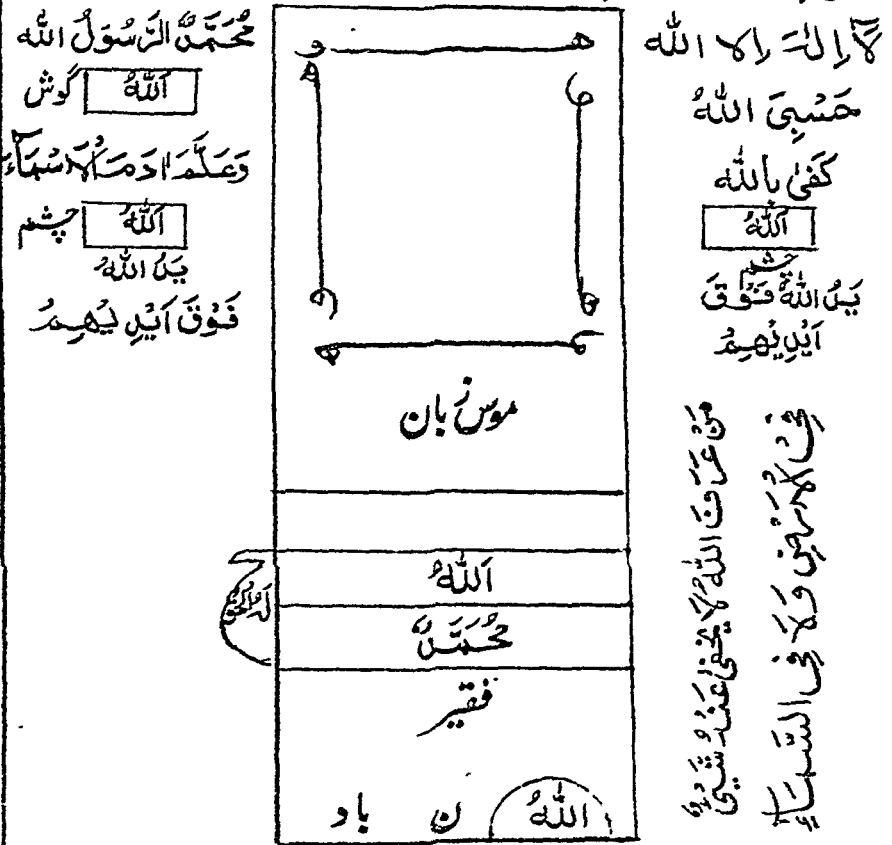 لَآ اِلٰهَ اِلا الله
حَسْبِيَ اللهُ
كَفىٰ بِالله
اَللهُ
چشم
يَدُ اللهُ فَوْقَ
اَيْدِيْهِمُ
مَنْ عَرَفَ اللهُ لَا يَخْفىٰ عَنْدُ شَيْئٌ
فِی الْاَرْضِ وَلَا فِی السَّمَاءِ
موس زبان
اَللهُ
مُحَمَّدٌ
فقیر
اللهُ ن باو
مُحَمَّدٌ الرَّسُوْلُ الله
اَللهُ گوش
وَعَلَّمَ اٰدَمَ الْاَسْمَآءَ
اَللهُ چشم
يَدُ اللهُ
فَوْقَ اَيْدِ يْهِمُ